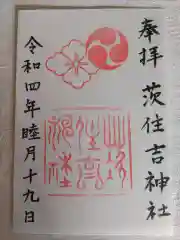 奉拝
茨住吉神社
令和四年睦月十九日